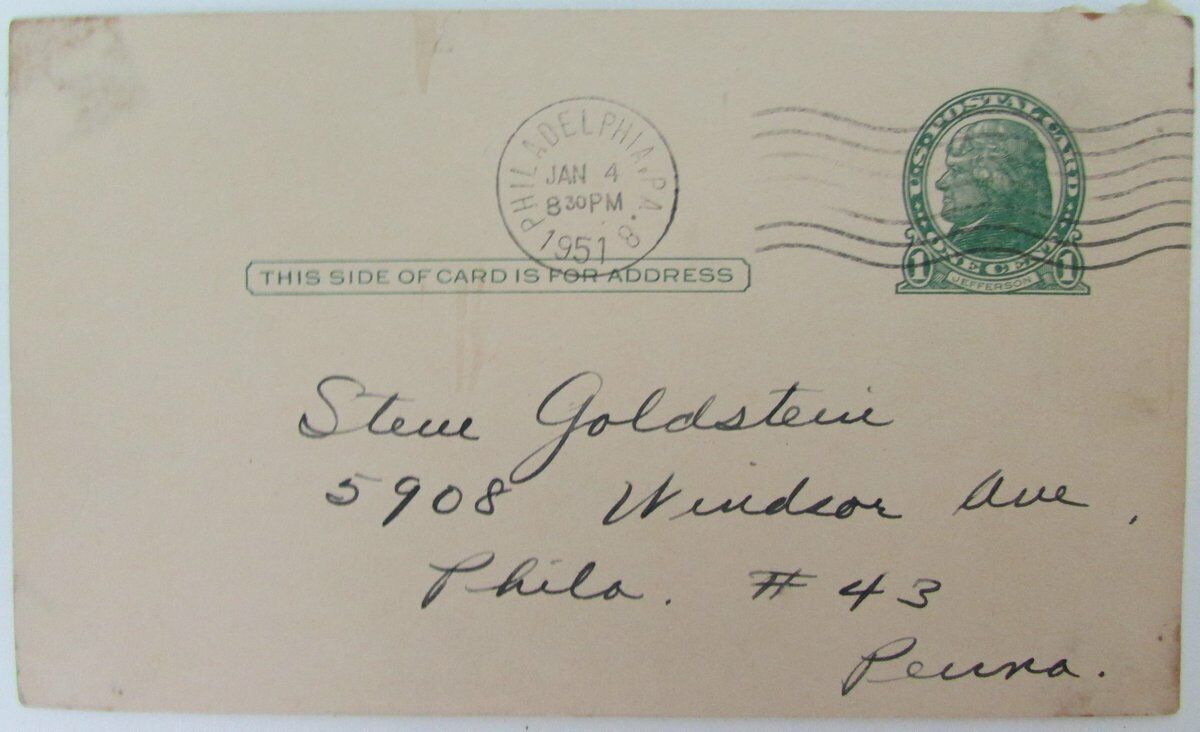 PHILADELPHIA, PA. 8
JAN 4
8 30 PM
1951
U.S. POSTAL CARD
ONE CENT
1 JEFFERSON 1
THIS SIDE OF CARD IS FOR ADDRESS
Steve Goldstein
5908 Windsor Ave,
Phila. # 43
Penna.